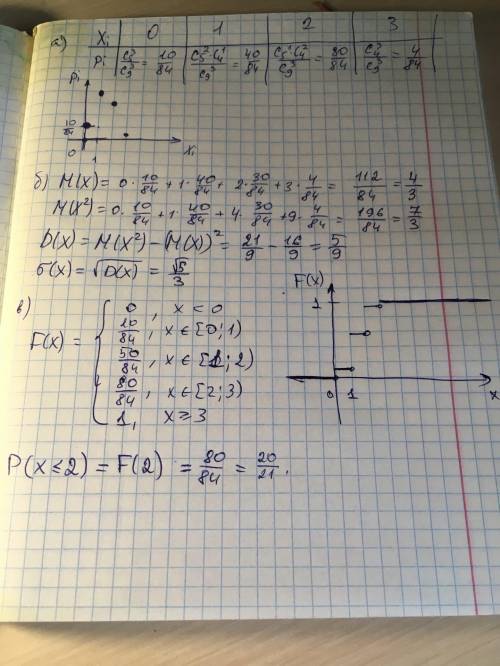 а) Xi | 0 | 1 | 2 | 3
Pi | C₅³/C₉³ = 10/84 | C₅²·C₄¹/C₉³ = 40/84 | C₅¹·C₄²/C₉³ = 30/84 | C₄³/C₉³ = 4/84
Pi
10/84
0 1 Xi
б) M(X) = 0·10/84 + 1·40/84 + 2·30/84 + 3·4/84 = 112/84 = 4/3
M(X²) = 0·10/84 + 1·40/84 + 4·30/84 + 9·4/84 = 196/84 = 7/3
D(X) = M(X²) − (M(X))² = 21/9 − 16/9 = 5/9
σ(x) = √D(X) = √5/3
F(x)
1
0 1 x
в) F(x) = {
0, x < 0
20/84, x ∈ [0; 1)
50/84, x ∈ [1; 2)
80/84, x ∈ [2; 3)
1, x ≥ 3
P(x ≤ 2) = F(2) = 80/84 = 20/21.